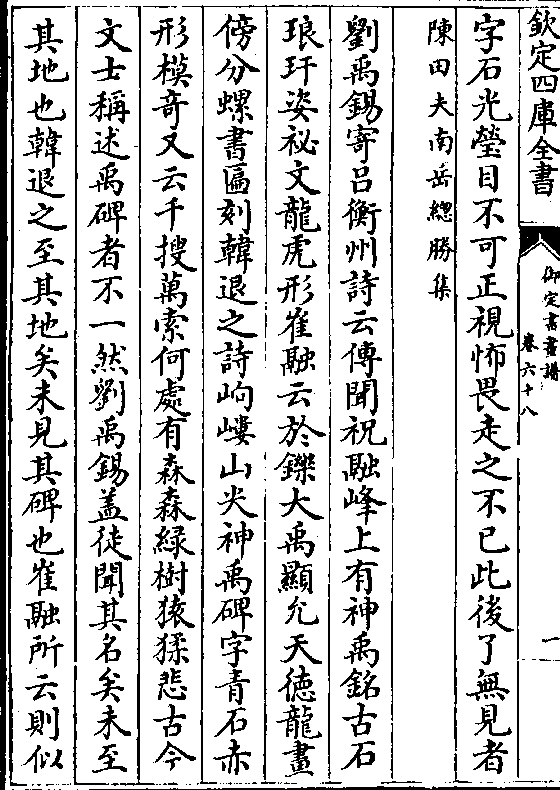 欽定四庫全書
御定書畫譜
卷六十八
一
字石光瑩目不可正視怖畏走之不已此後了無見者
陳田夫南岳總勝集
劉禹錫寄吕衡州詩云傳聞祝融峰上有神禹銘古石
琅玕姿祕文龍虎形崔融云於鑠大禹顯允天德龍畫
傍分螺書匾刻韓退之詩岣嶁山尖神禹碑字青石赤
形模奇又云千搜萬索何處有森森綠樹猿猱悲古今
文士稱述禹碑者不一然劉禹錫蓋徒聞其名矣未至
其地也韓退之至其地矣未見其碑也崔融所云則似